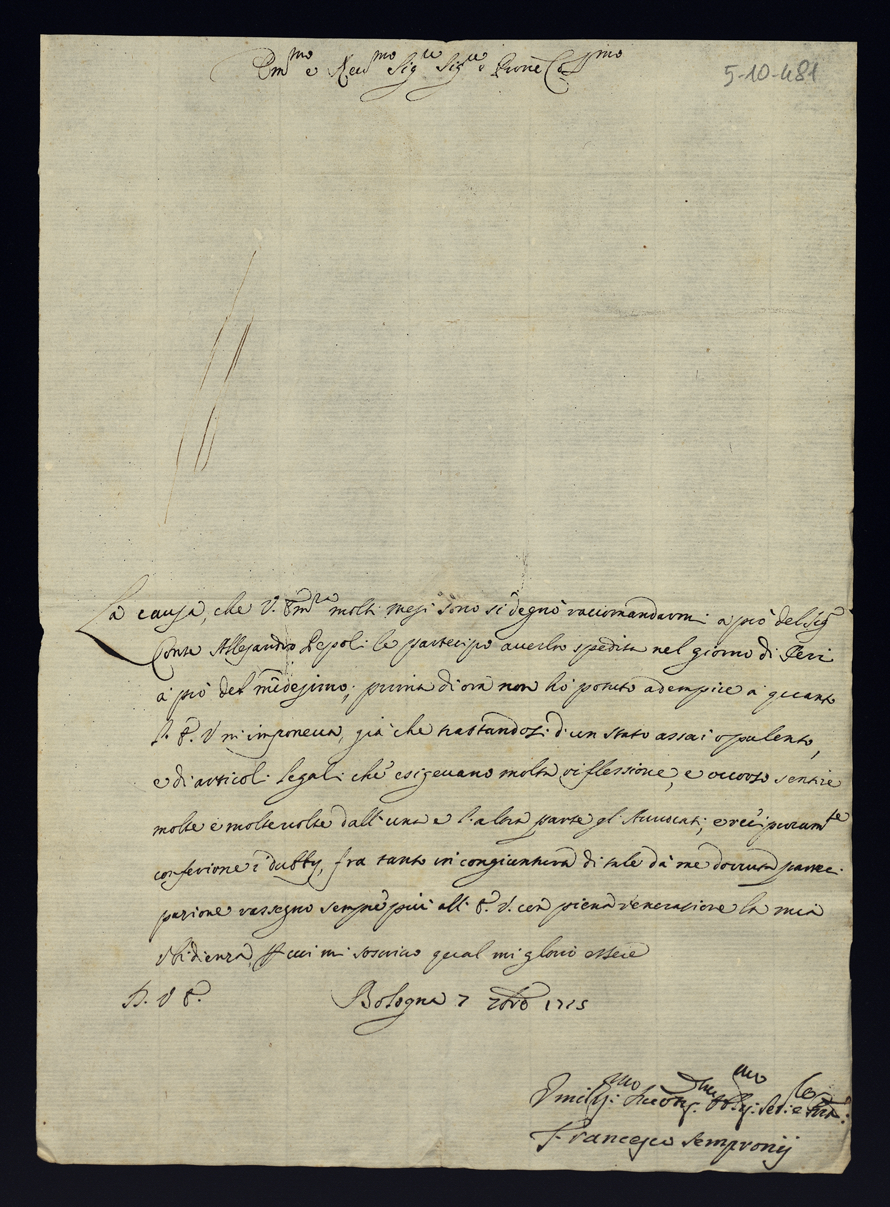 Em.mo e Rev.mo Sig.re Sig.re e Prone Col.mo
5-10-481
La causa, che V. Em.za molti mesi sono si degnò raccomandarmi a prò del Sig.
Conte Allesandro Pepoli le partecipo averla spedita nel giorno di Ieri
à prò del medesimo, prima di ora non hò potuto adempire a quanto
l' E. V. m'imponeva, già che trattandosi d'un stato assai opulento,
e di articoli legali che esigevano molta riflessione, è occorso sentire
molte e molte volte dall' una e l' altra parte gl' Avvocati, e reciprocam.te
conferirne i dubbj, fra tanto in congiuntura di tale da me dovuta parteci
pazione rassegno sempre più all' E. V. con piena venerazione la mia
obidienza, per cui mi soscrivo qual mi glorio essere
D. V. E.
Bologna 7 9bre 1725
Umiliss.mo Obblig. Ser.e
Francesco Sempronij